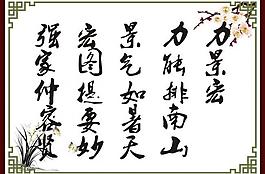 力景宏
力能排南山
景气如暑天
宏图提要妙
强家仲容贤